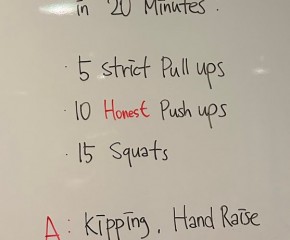 in 20 Minutes.
· 5 strict Pull ups
· 10 Honest Push ups
· 15 Squats
A: Kipping. Hand Raise